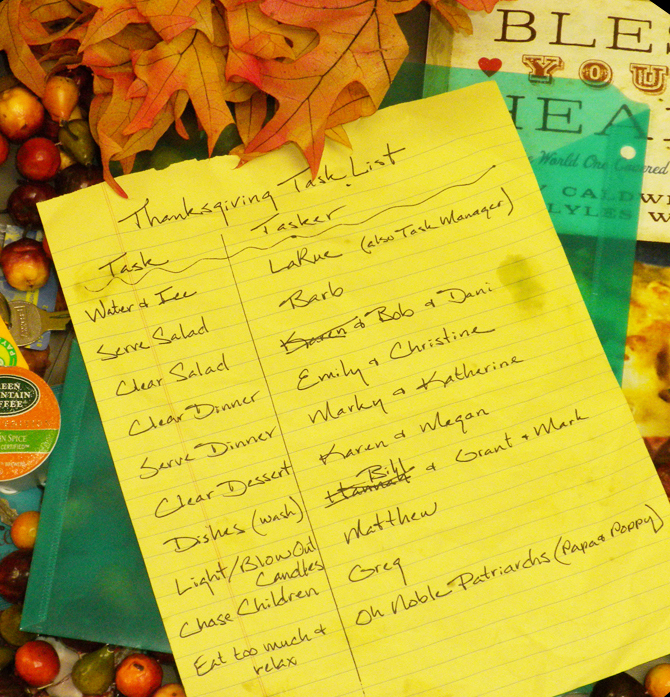 BLES
YOU
HEA
World One Covered
CALDW
LYLES W
Thanksgiving Task List
Task Tasker
Water & Ice LaRue (also Task Manager)
Serve Salad Barb
Clear Salad Karen & Bob & Dani
Clear Dinner Emily & Christine
Serve Dinner Marky & Katherine
Clear Dessert Karen & Megan
Bill
Dishes (wash) Hannah & Grant & Mark
Light/Blow Out Matthew
Candles
Chase Children Greg
Eat too much & Oh Noble Patriarchs (Papa & Poppy)
relax
EEN
UNTAIN
FFEE
N SPICE
CERTIFIED